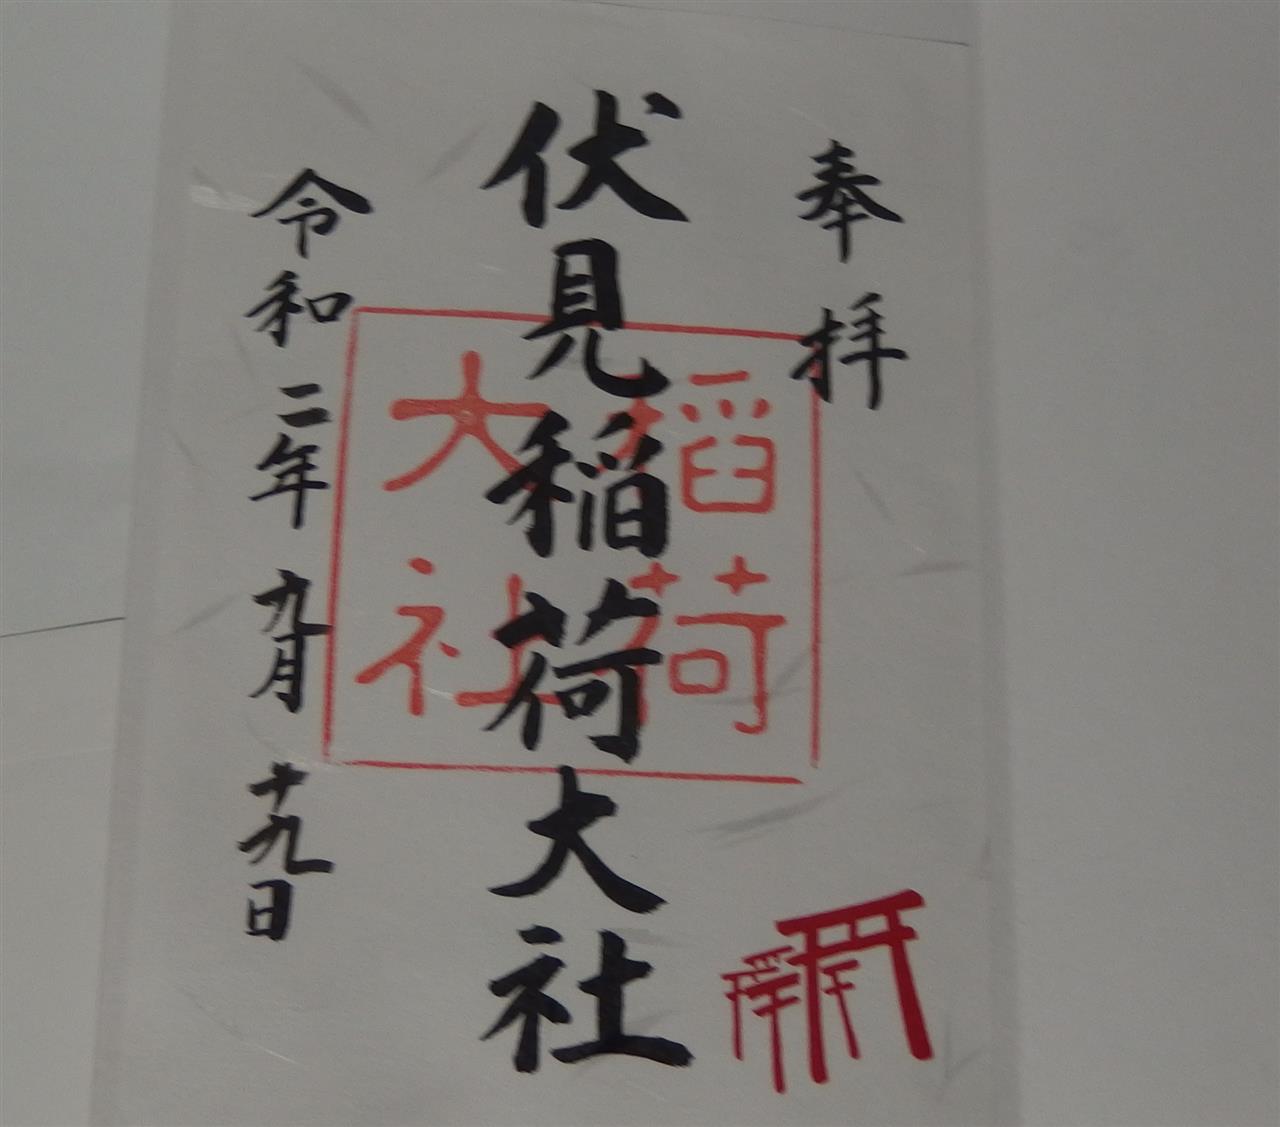 奉拝
伏見稲荷大社
稲荷
大社
令和二年九月十九日